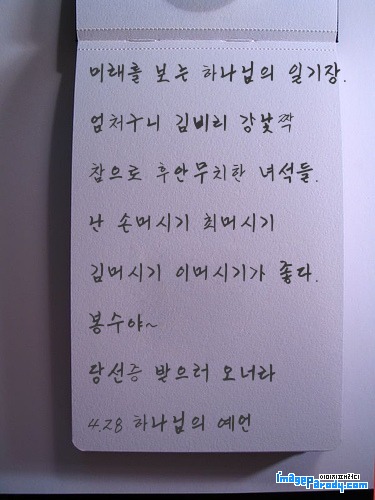 미래를 보는 하나님의 일기장.
엄처구니 김비리 강낯짝
참으로 후안무치한 녀석들.
난 손머시기 최머시기
김머시기 이머시기가 좋다.
봉수야~
당선증 받으러 오너라
4.28 하나님의 예언
이미지패러디
imageparody.com